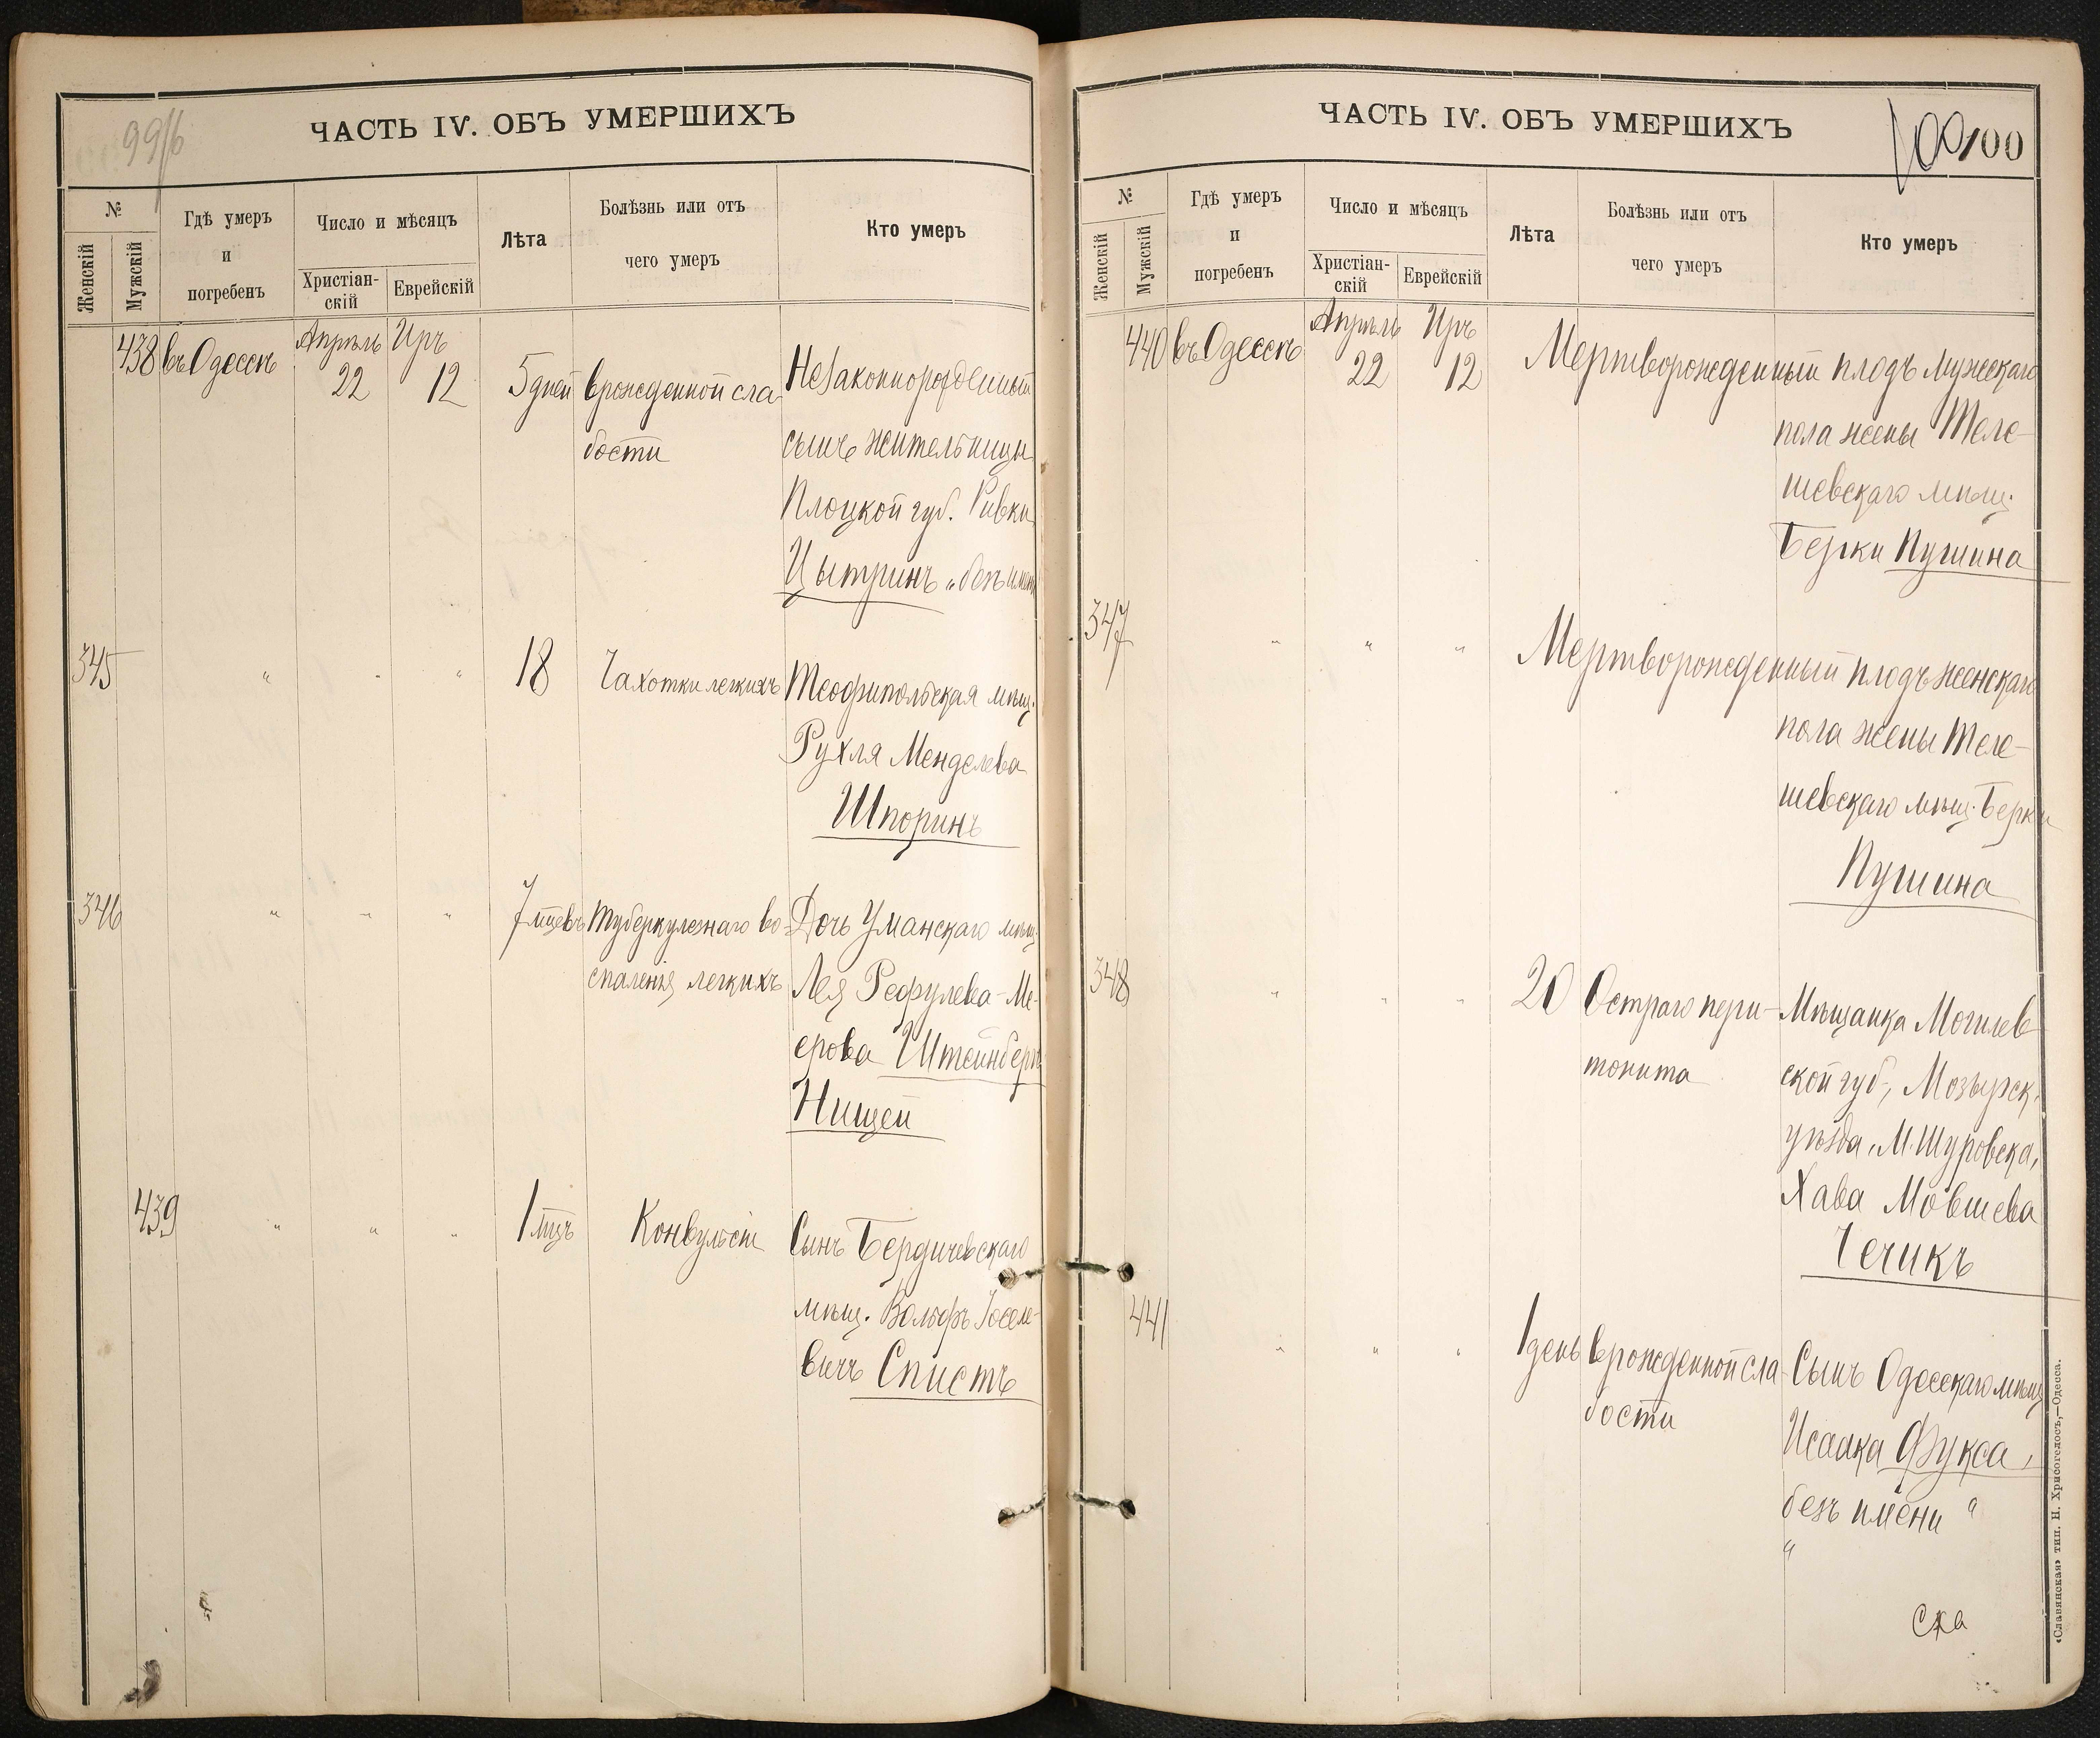 99/б
ЧАСТЬ IV. ОБЪ УМЕРШИХЪ
№
Женскій
Мужскій
Гдѣ умеръ
и
погребенъ
Число и мѣсяцъ
Христіан-
скій
Еврейскій
Лѣта
Болѣзнь или отъ
чего умеръ
Кто умеръ
438 въ Одессѣ Апрѣль 22 Иръ 12 5 дней врожденной сла- Незаконнорожденный
бости сынъ жительницы
Плоцкой губ. Ривки
Цытринъ „безъ имени
345 " " " 18 Чахотки легкихъ Теофипольская мѣщ.
Рухля Менделева
Шпоринъ
346 " " " 7 мцевъ Туберкулезнаго во- Дочь Уманскаго мѣщ.
спаленія легкихъ Лея Рефулева-Ме-
ерова Штейнбергъ
Нищей
439 " " " 1 мцъ Конвульсіи Сынъ Бердичевскаго
мѣщ. Вольфъ Іоселе-
вичъ Спистъ
ЧАСТЬ IV. ОБЪ УМЕРШИХЪ
100 100
№
Женскій
Мужскій
Гдѣ умеръ
и
погребенъ
Число и мѣсяцъ
Христіан-
скій
Еврейскій
Лѣта
Болѣзнь или отъ
чего умеръ
Кто умеръ
440 въ Одессѣ Апрѣль 22 Иръ 12 Мертворожденный плодъ мужескаго
пола жены Теле-
шевскаго мѣщ.
Берки Пушина
347 " " " Мертворожденный плодъ женскаго
пола жены Теле-
шевскаго мѣщ. Берки
Пушина
348 " " " 20 Остраго пери- Мѣщанка Могилев
тонита ской губ., Мозырск.
уѣзда, М. Шуровска,
Хава Мовшева
Чечикъ
441 " " " 1 день врожденной сла- Сынъ Одесскаго мѣщ
бости Исаака Фукса,
безъ имени "
"
«Славянская» тип. Н. Хрисогелосъ,—Одесса.